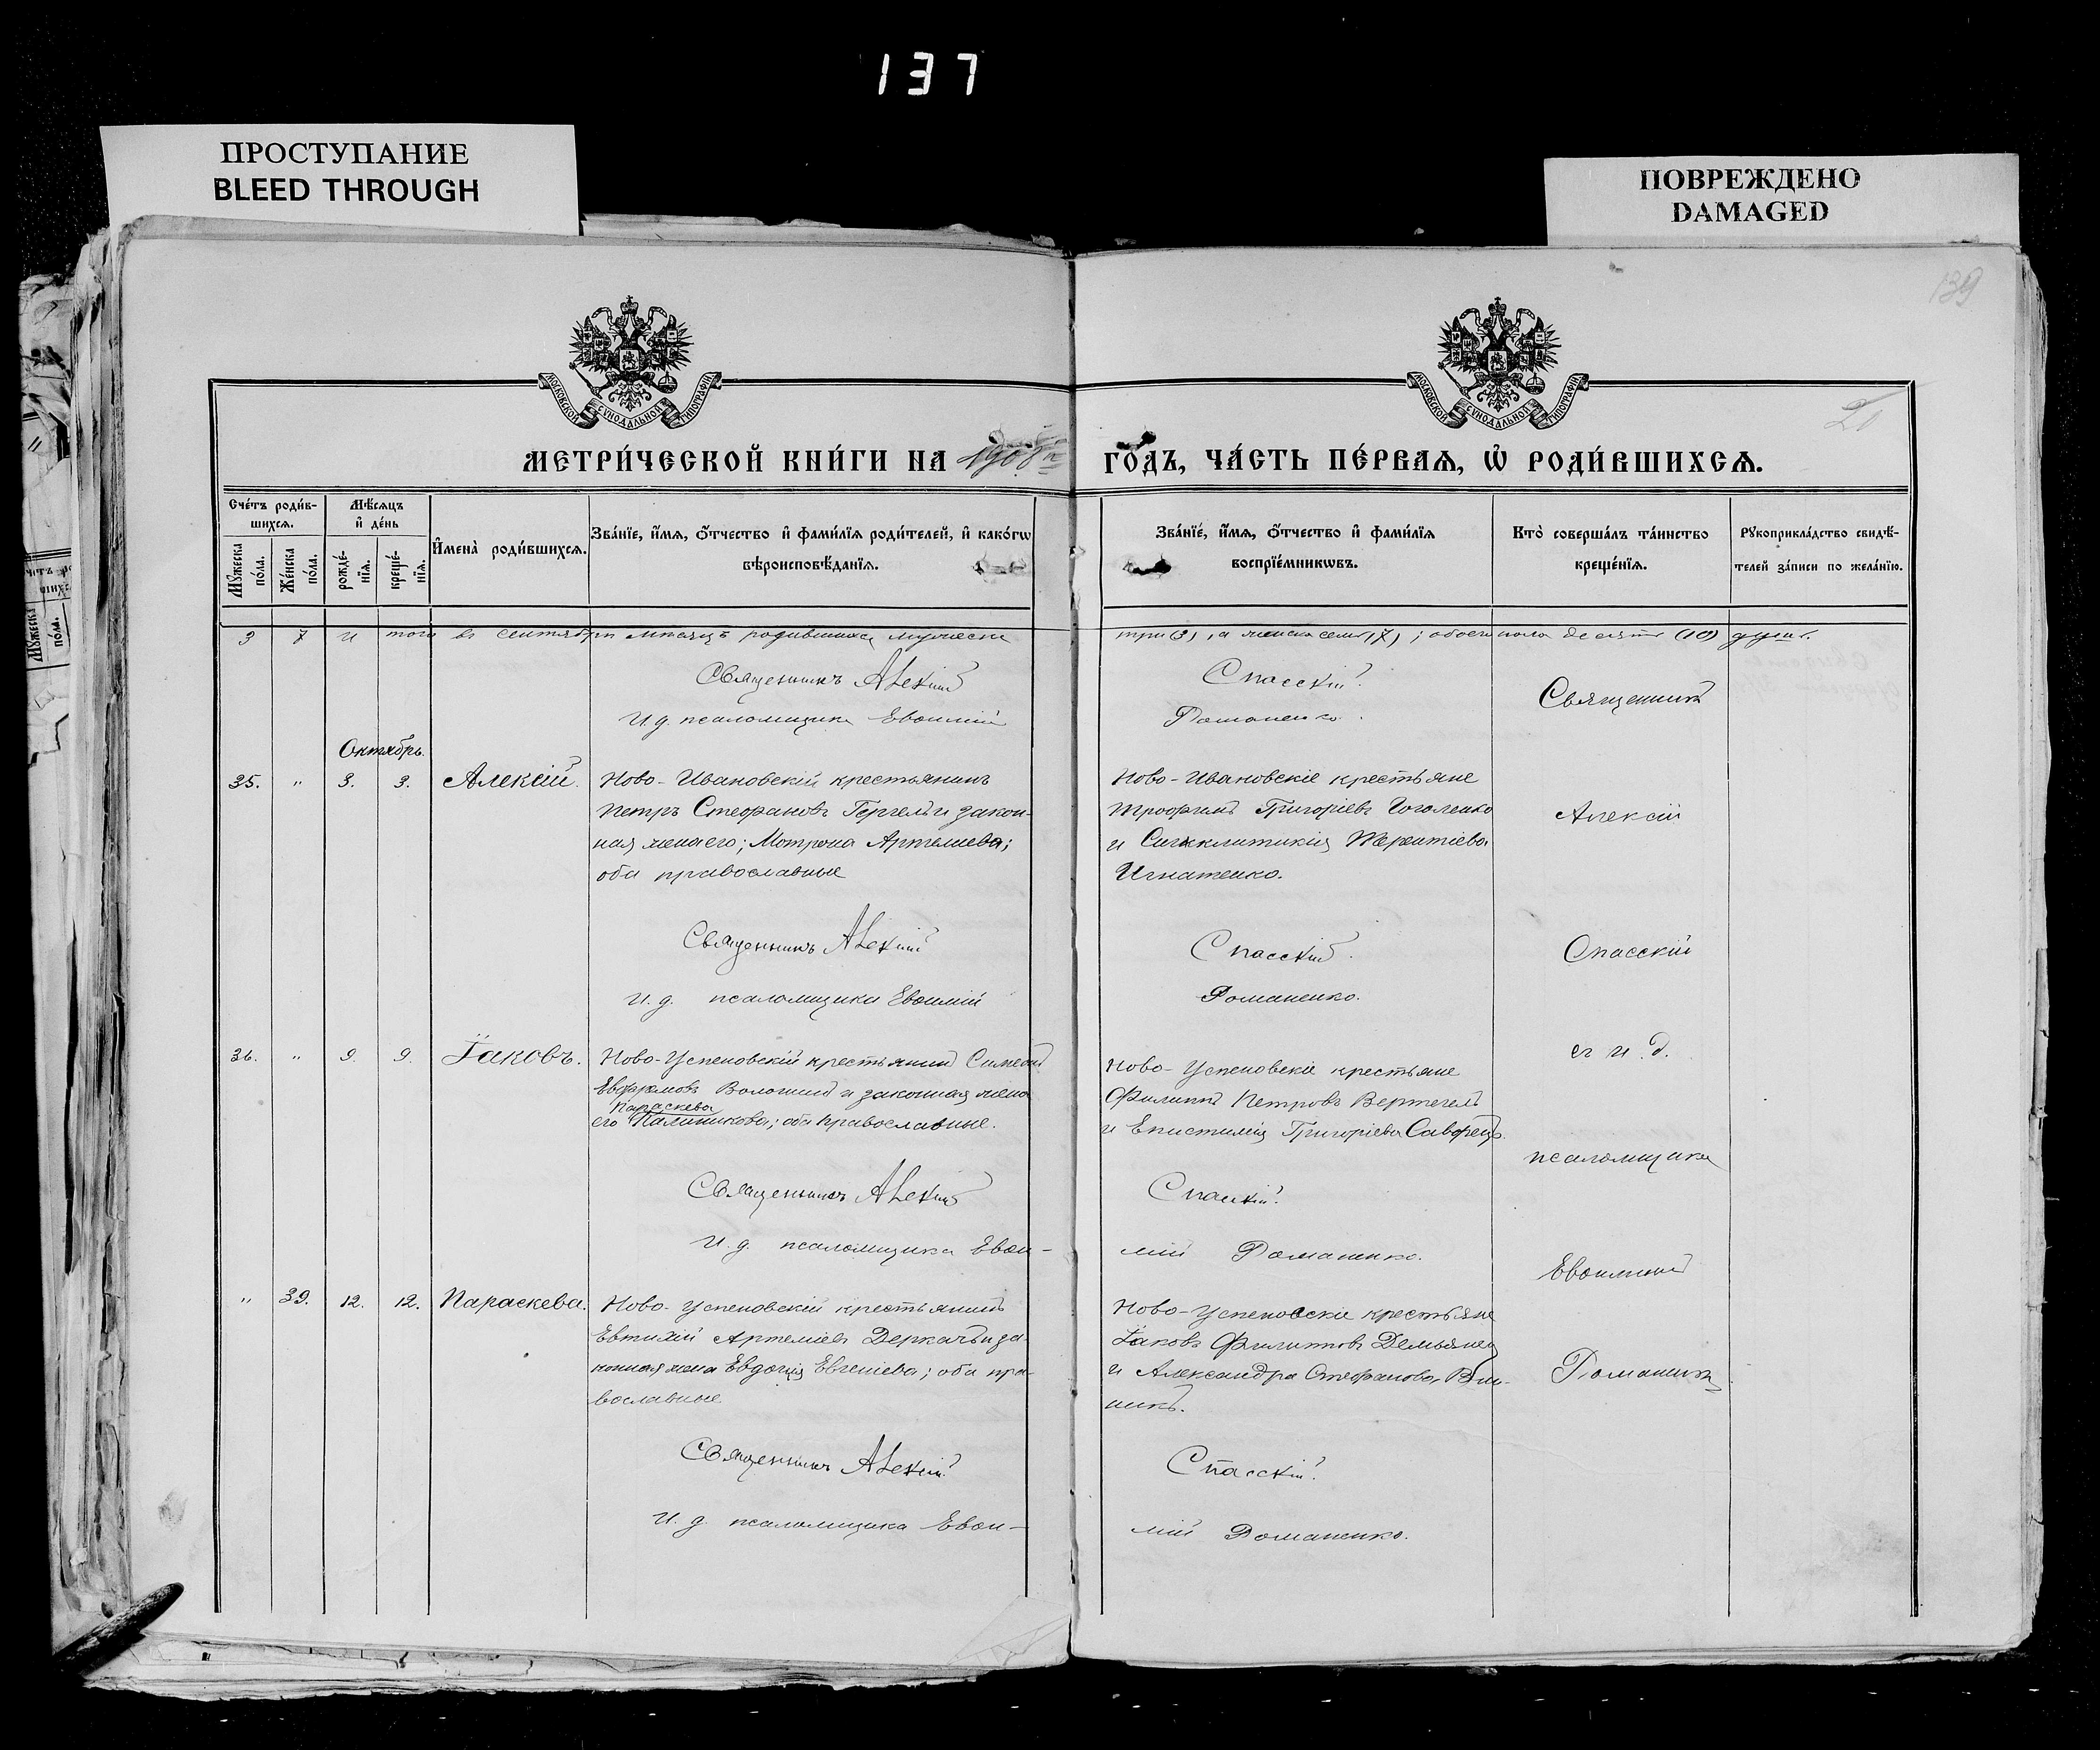 137
ПРОСТУПАНИЕ
BLEED THROUGH
ПОВРЕЖДЕНО
DAMAGED
139
МОСКОВСКОЙ СѴНОДАЛЬНОЙ ТИПОГРАФІИ
МОСКОВСКОЙ СѴНОДАЛЬНОЙ ТИПОГРАФІИ
МЕТРИ́ЧЕСКОЙ КНИ́ГИ НА 1908й ГО́ДЪ, ЧА́СТЬ ПЕ́РВАѦ, Ѡ҆ РОДИ́ВШИХСѦ.
Сче́тъ роди́в-
шихсѧ.
Мꙋ́жеска по́ла.
Же́нска по́ла.
Мѣ́сѧцъ
и҆ де́нь
рожде́-
нїѧ.
креще́-
нїѧ.
И҆мена̀ роди́вшихсѧ.
Зва́нїе, и҆́мѧ, ѻ҆́тчество и҆ фами́лїѧ роди́телей, и҆ како́гѡ
вѣроисповѣ́данїѧ.
Зва́нїе, и҆́мѧ, ѻ҆́тчество и҆ фами́лїѧ
воспрїе́мникѡвъ.
Кто̀ соверша́лъ та́инство
креще́нїѧ.
Рꙋкоприкла́дство свидѣ́-
телей за́писи по жела́нїю.
3 7 И того въ сентябрѣ мѣсяцѣ родившихся мужеска три (3), а женска семь (7); обоего пола десять (10) душъ.
Священникъ Алексій Спасскій.
И. д. псаломщика Евѳимій Романенко.
Октябрь.
35. " 3. 3. Алексій.
Ново-Ивановскій крестьянинъ
Петръ Стефановъ Гергель и закон-
ная жена его; Мотрона Артемиева;
оба православные
Ново-Ивановскіе крестьяне
Трофимъ Григоріевъ Гоголенко
и Сигклитикія Терентіева
Игнатенко.
Священникъ Алексій Спасскій.
И. д. псаломщика Евѳимій Романенко.
36. " 9. 9. Іаковъ.
Ново-Успеновскій крестьянинъ Симеонъ
Евфимовъ Волошинъ и законная жена
Параскева
его Калиникова; оба православные.
Ново-Успеновскіе крестьяне
Филиппъ Петровъ Вертегелъ
и Епистимія Григоріева Саворецъ.
Священникъ Алексій Спасскій.
И. д. псаломщика Евѳи-
мій Романенко.
" 39. 12. 12. Параскева.
Ново-Успеновскій крестьянинъ
Евтихій Артеміевъ Деркачъ и за-
конная жена Евдокія Евгеніева; оба пра-
вославные
Ново-Успеновскіе крестьяне
Іаковъ Филипповъ Демьянец
и Александра Стефанова Вин-
никъ.
Священникъ Алексій Спасскій.
И. д. псаломщика Евѳи-
мій Романенко.
Священникъ
Алексій
Спасскій
съ и. д.
псаломщика
Евѳиміемъ